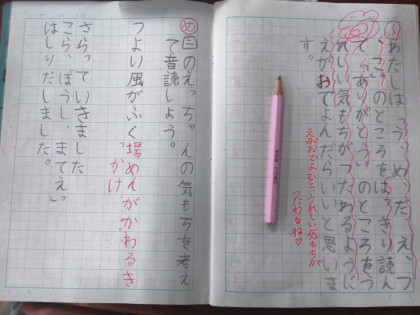 わたしは「う、め、だ、え、つ
こ」のところをはっきり読ん
で「ありがとう」のところをう
れしい気もちがつたわるように
えがおでよんだらいいと思いま
す。
えがおでよむと、うれしい気もちが
つたわるね
め 三のえっちゃんの気もちを考え
て音読しよう。
つよい風がふく 場めんがかわるき
っかけ
さらっていきました
こら、ぼうし、まてえ。
はしりだしました。